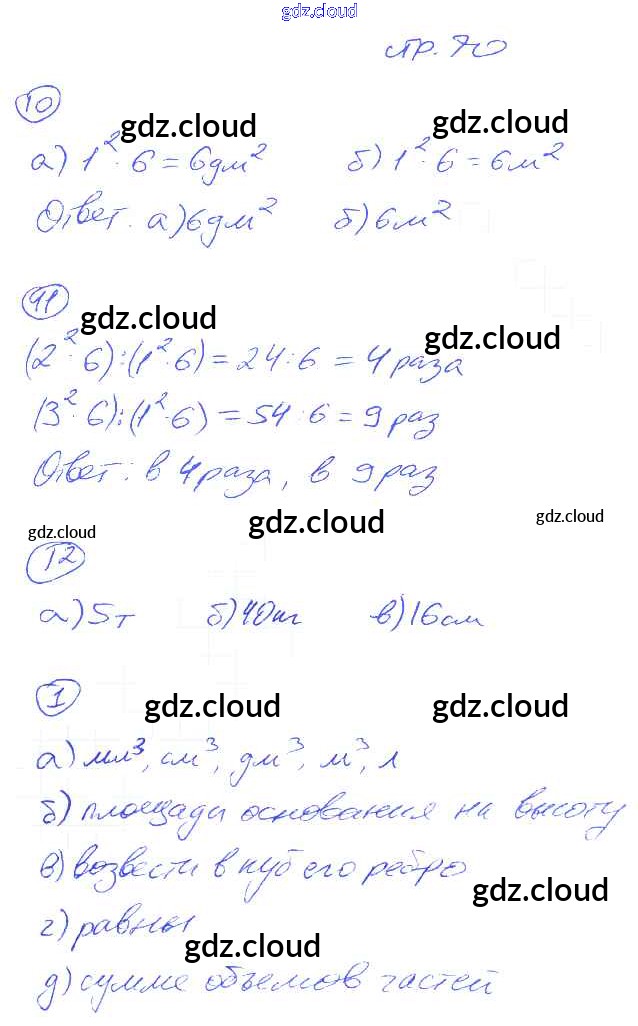 gdz.cloud
стр. 70
10
gdz.cloud gdz.cloud
а) 1² · 6 = 6дм² б) 1² · 6 = 6м²
Ответ. а) 6дм² б) 6м²
11
gdz.cloud gdz.cloud
(2² · 6) : (1² · 6) = 24 : 6 = 4 раза
(3² · 6) : (1² · 6) = 54 : 6 = 9 раз
Ответ: в 4 раза, в 9 раз
gdz.cloud gdz.cloud gdz.cloud
12
а) 5т б) 40кг в) 16см
1
gdz.cloud gdz.cloud
а) мм³, см³, дм³, м³, л
б) площади основания на высоту
в) возвести в куб его ребро
gdz.cloud
г) равны
gdz.cloud
д) сумме объемов частей